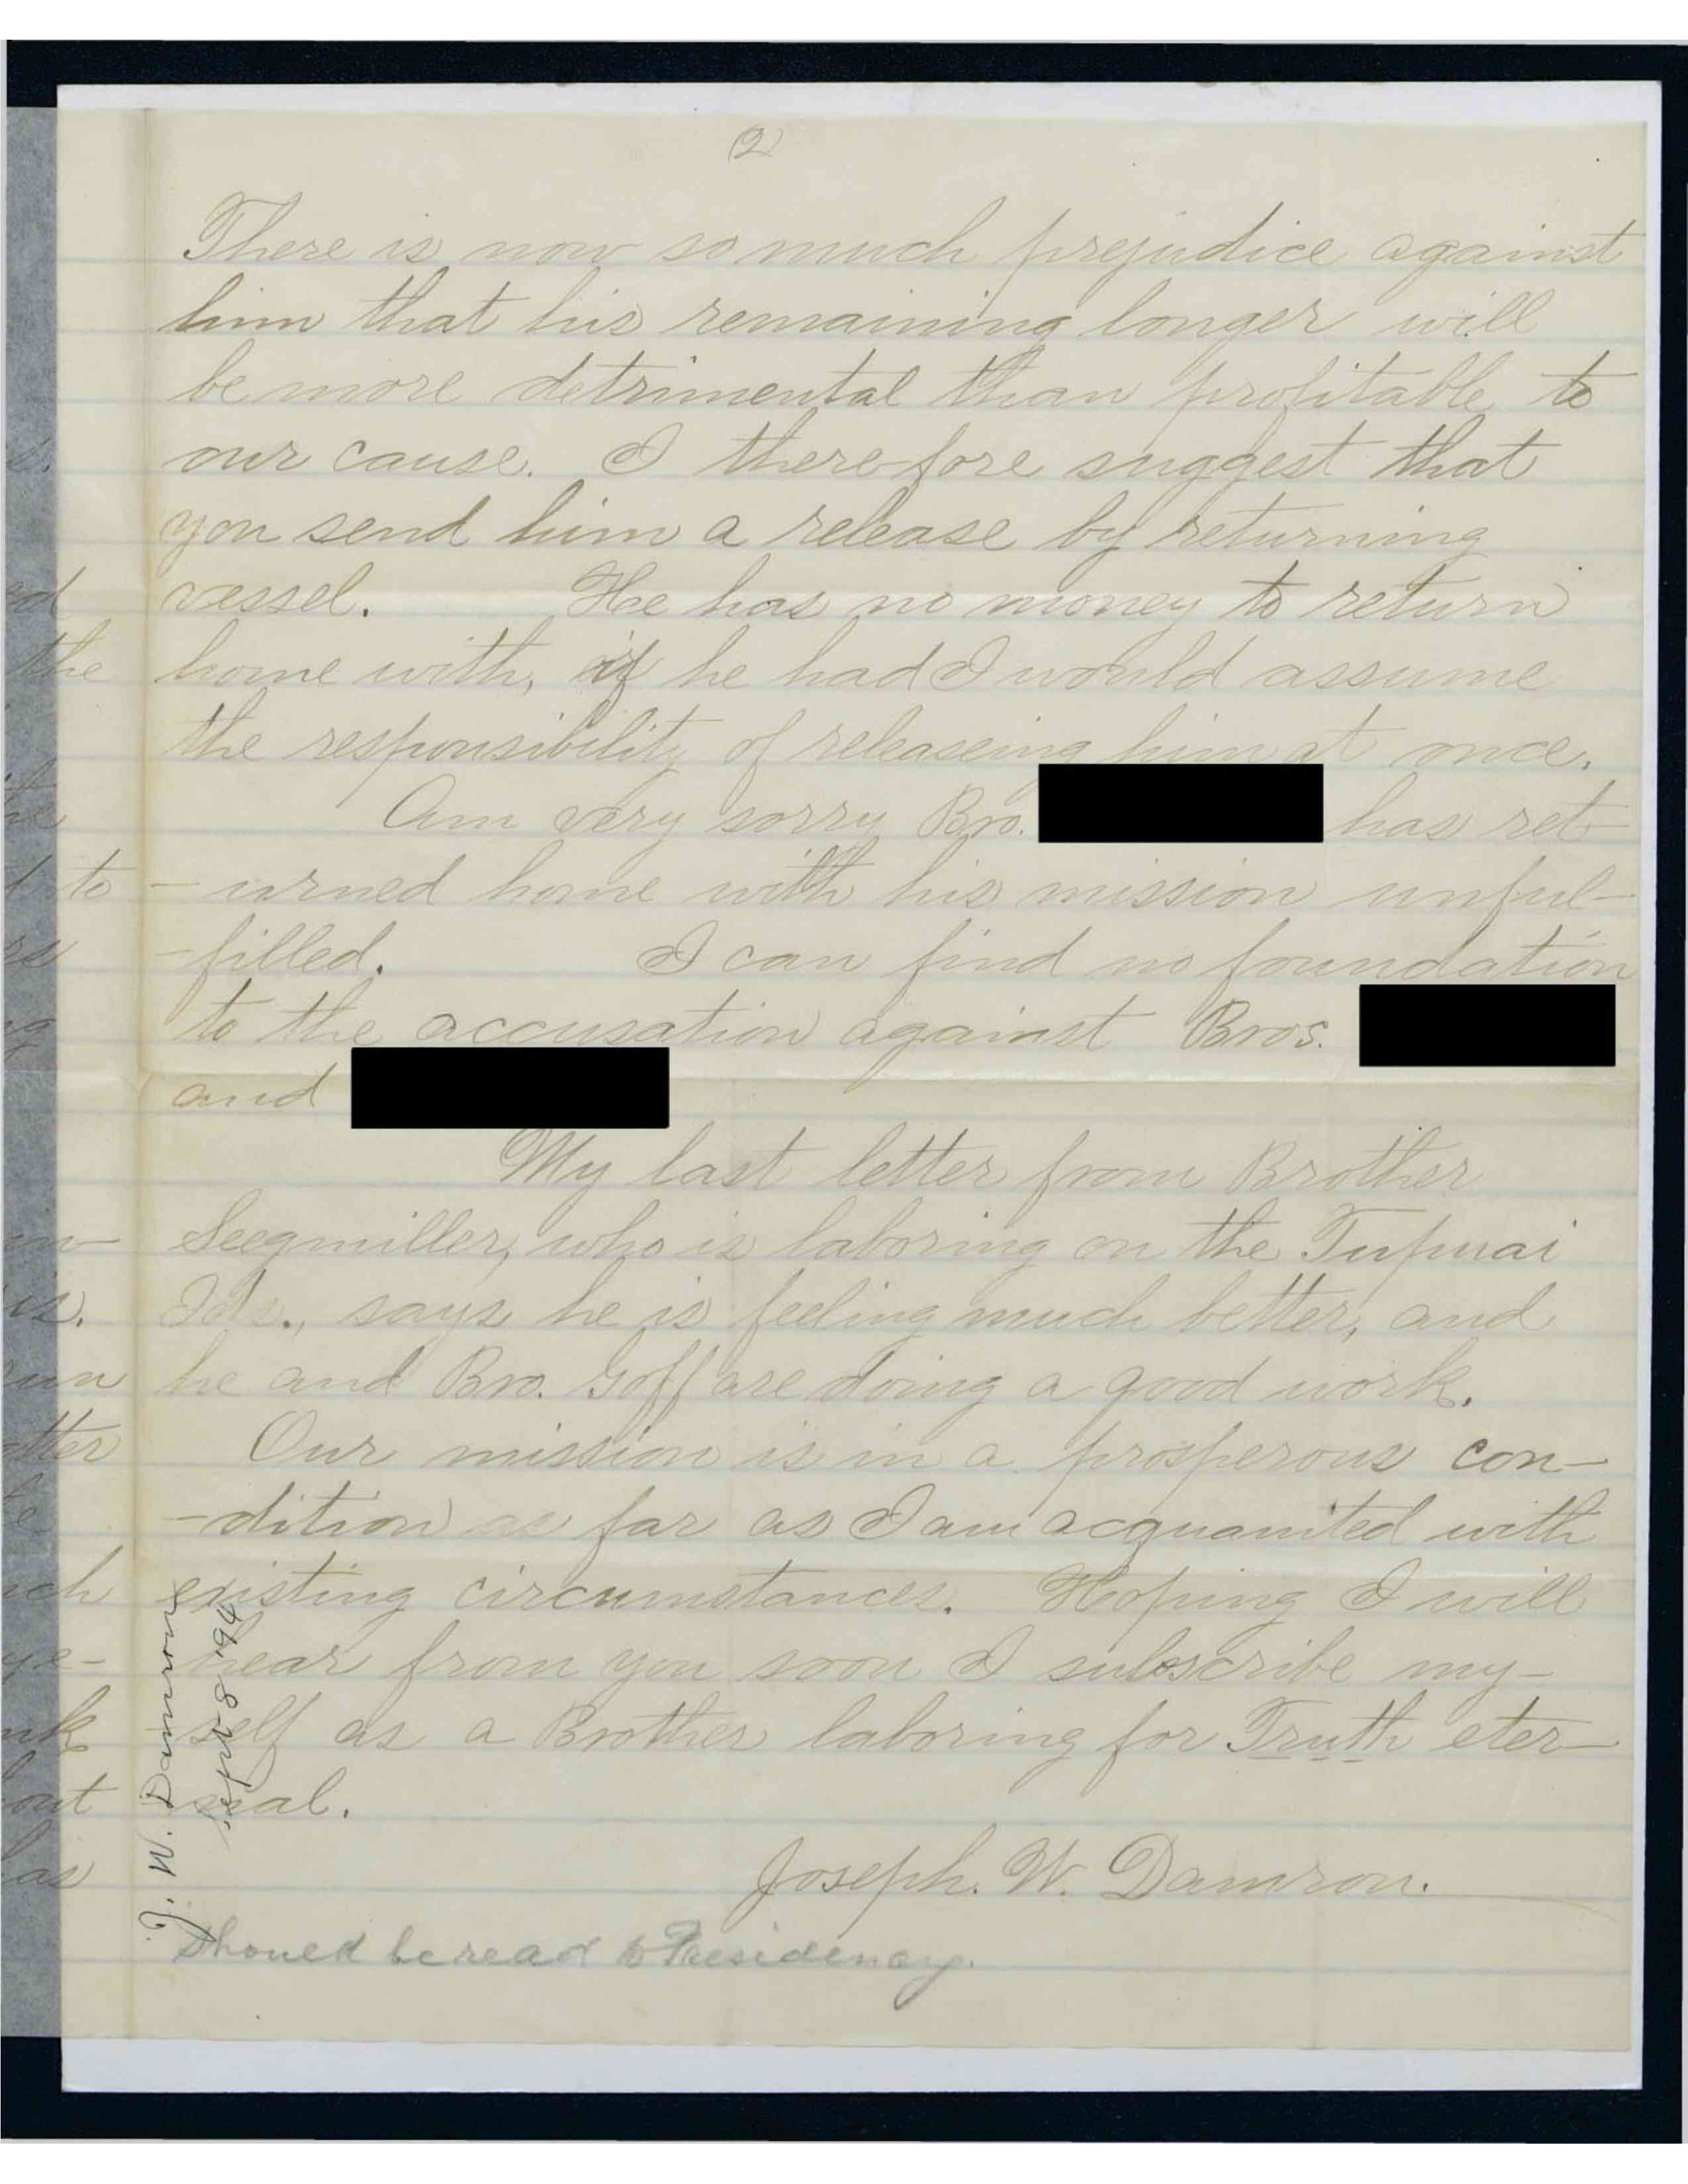 (2)
There is now so much prejudice against
him that his remaining longer will
be more detrimental than profitable to
our cause. I therefore suggest that
you send him a release by returning
vessel. He has no money to return
home with, if he had I would assume
the responsibility of releaseing him at once.
Am very sorry Bro. has ret-
-urned home with his mission unful-
-filled. I can find no foundation
to the accusation against Bros.
and
My last letter from Brother
Seegmiller, who is laboring on the Tupuai
Ids., says he is feeling much better, and
he and Bro. Goff are doing a good work.
Our mission is in a prosperous con-
-dition as far as I am acquanited with
existing circumstances. Hoping I will
hear from you soon I subscribe my-
self as a Brother laboring for Truth eter-
nal.
Joseph. W. Damron.
Should be read to Presidency.
J. W. Damron
Sept 8 '94
s.
ed
the
to
is.
ch
ye-
nk
out
as